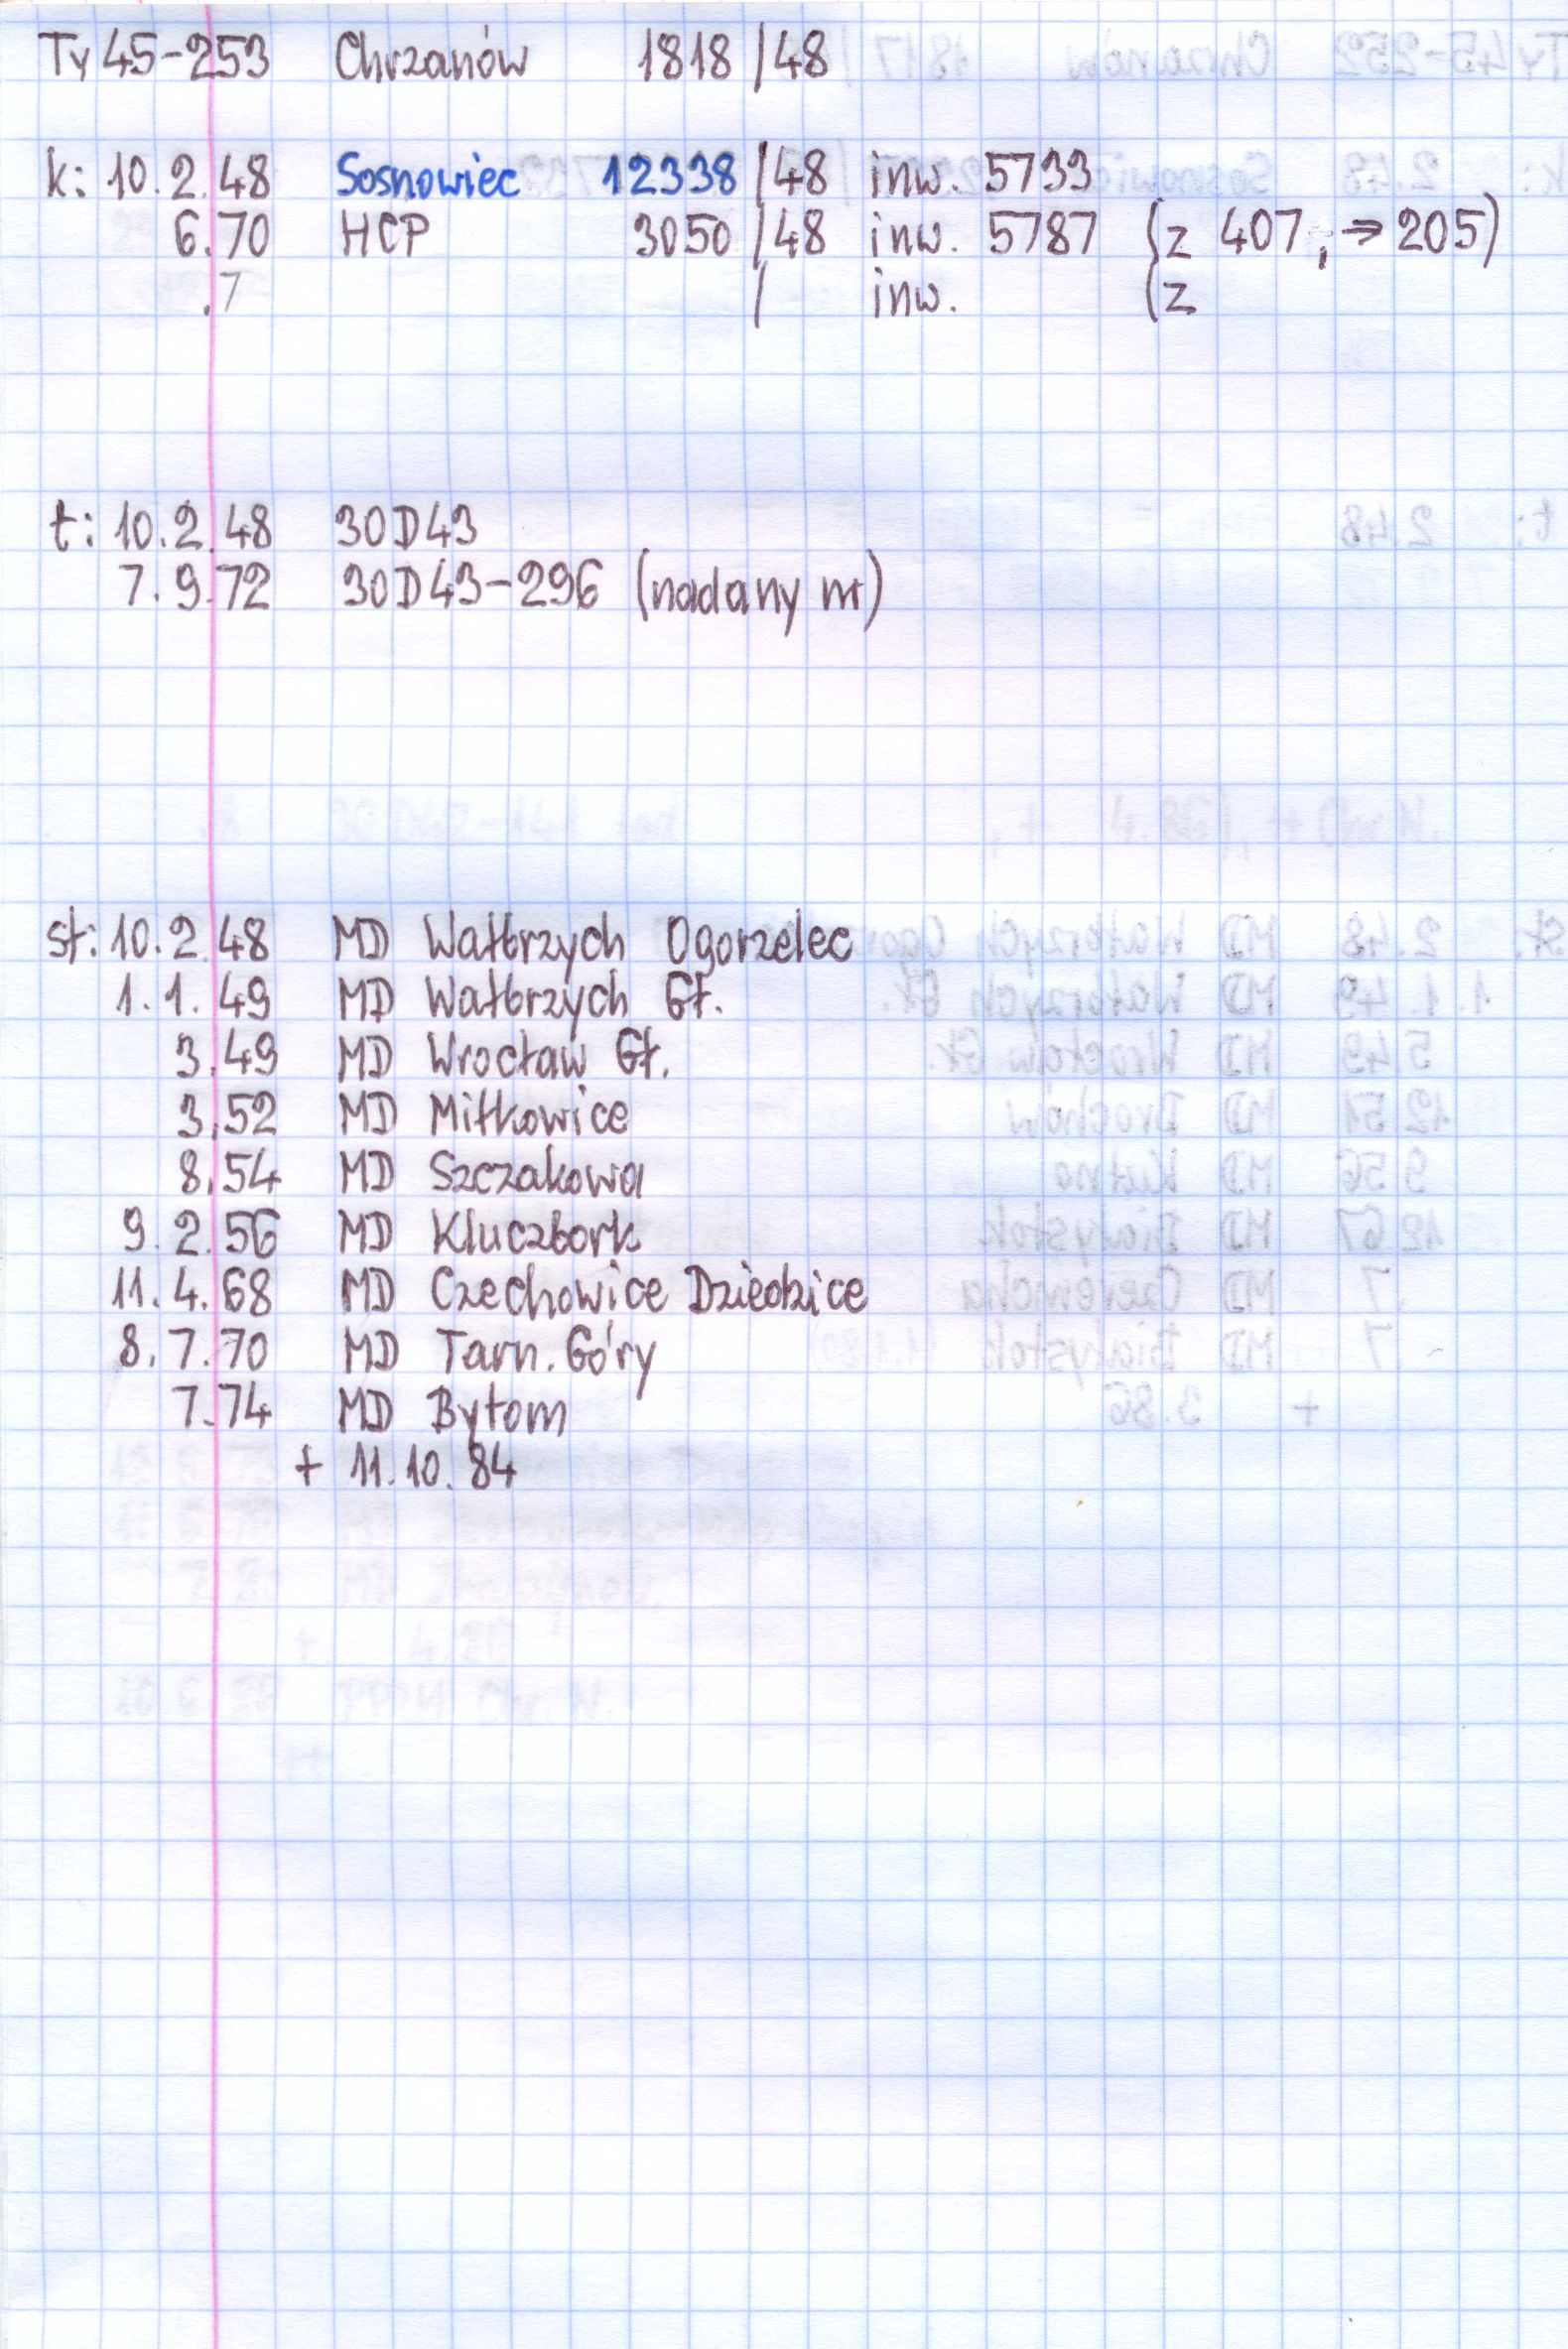 Ty45-253 Chrzanów 1818/48
k: 10.2.48 Sosnowiec 12338/48 inw. 5733
6.70 HCP 3050/48 inw. 5787 (z 407, → 205)
.7 / inw. (z
t: 10.2.48 30D43
7.9.72 30D43-296 (nadany nr)
st: 10.2.48 MD Wałbrzych Ogorzelec
1.1.49 MD Wałbrzych Gł.
3.49 MD Wrocław Gł.
3.52 MD Miłkowice
8.54 MD Szczakowa
9.2.56 MD Kluczbork
11.4.68 MD Czechowice Dziedzice
8.7.70 MD Tarn. Góry
7.74 MD Bytom
+ 11.10.84